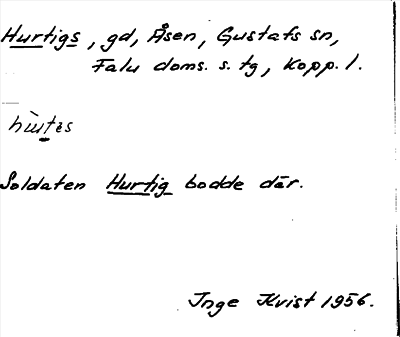 Hurtigs, gd, Åsen, Gustafs sn,
Falu doms. s. tg, Kopp. l.
Soldaten Hurtig bodde där.
Inge Kvist 1956.